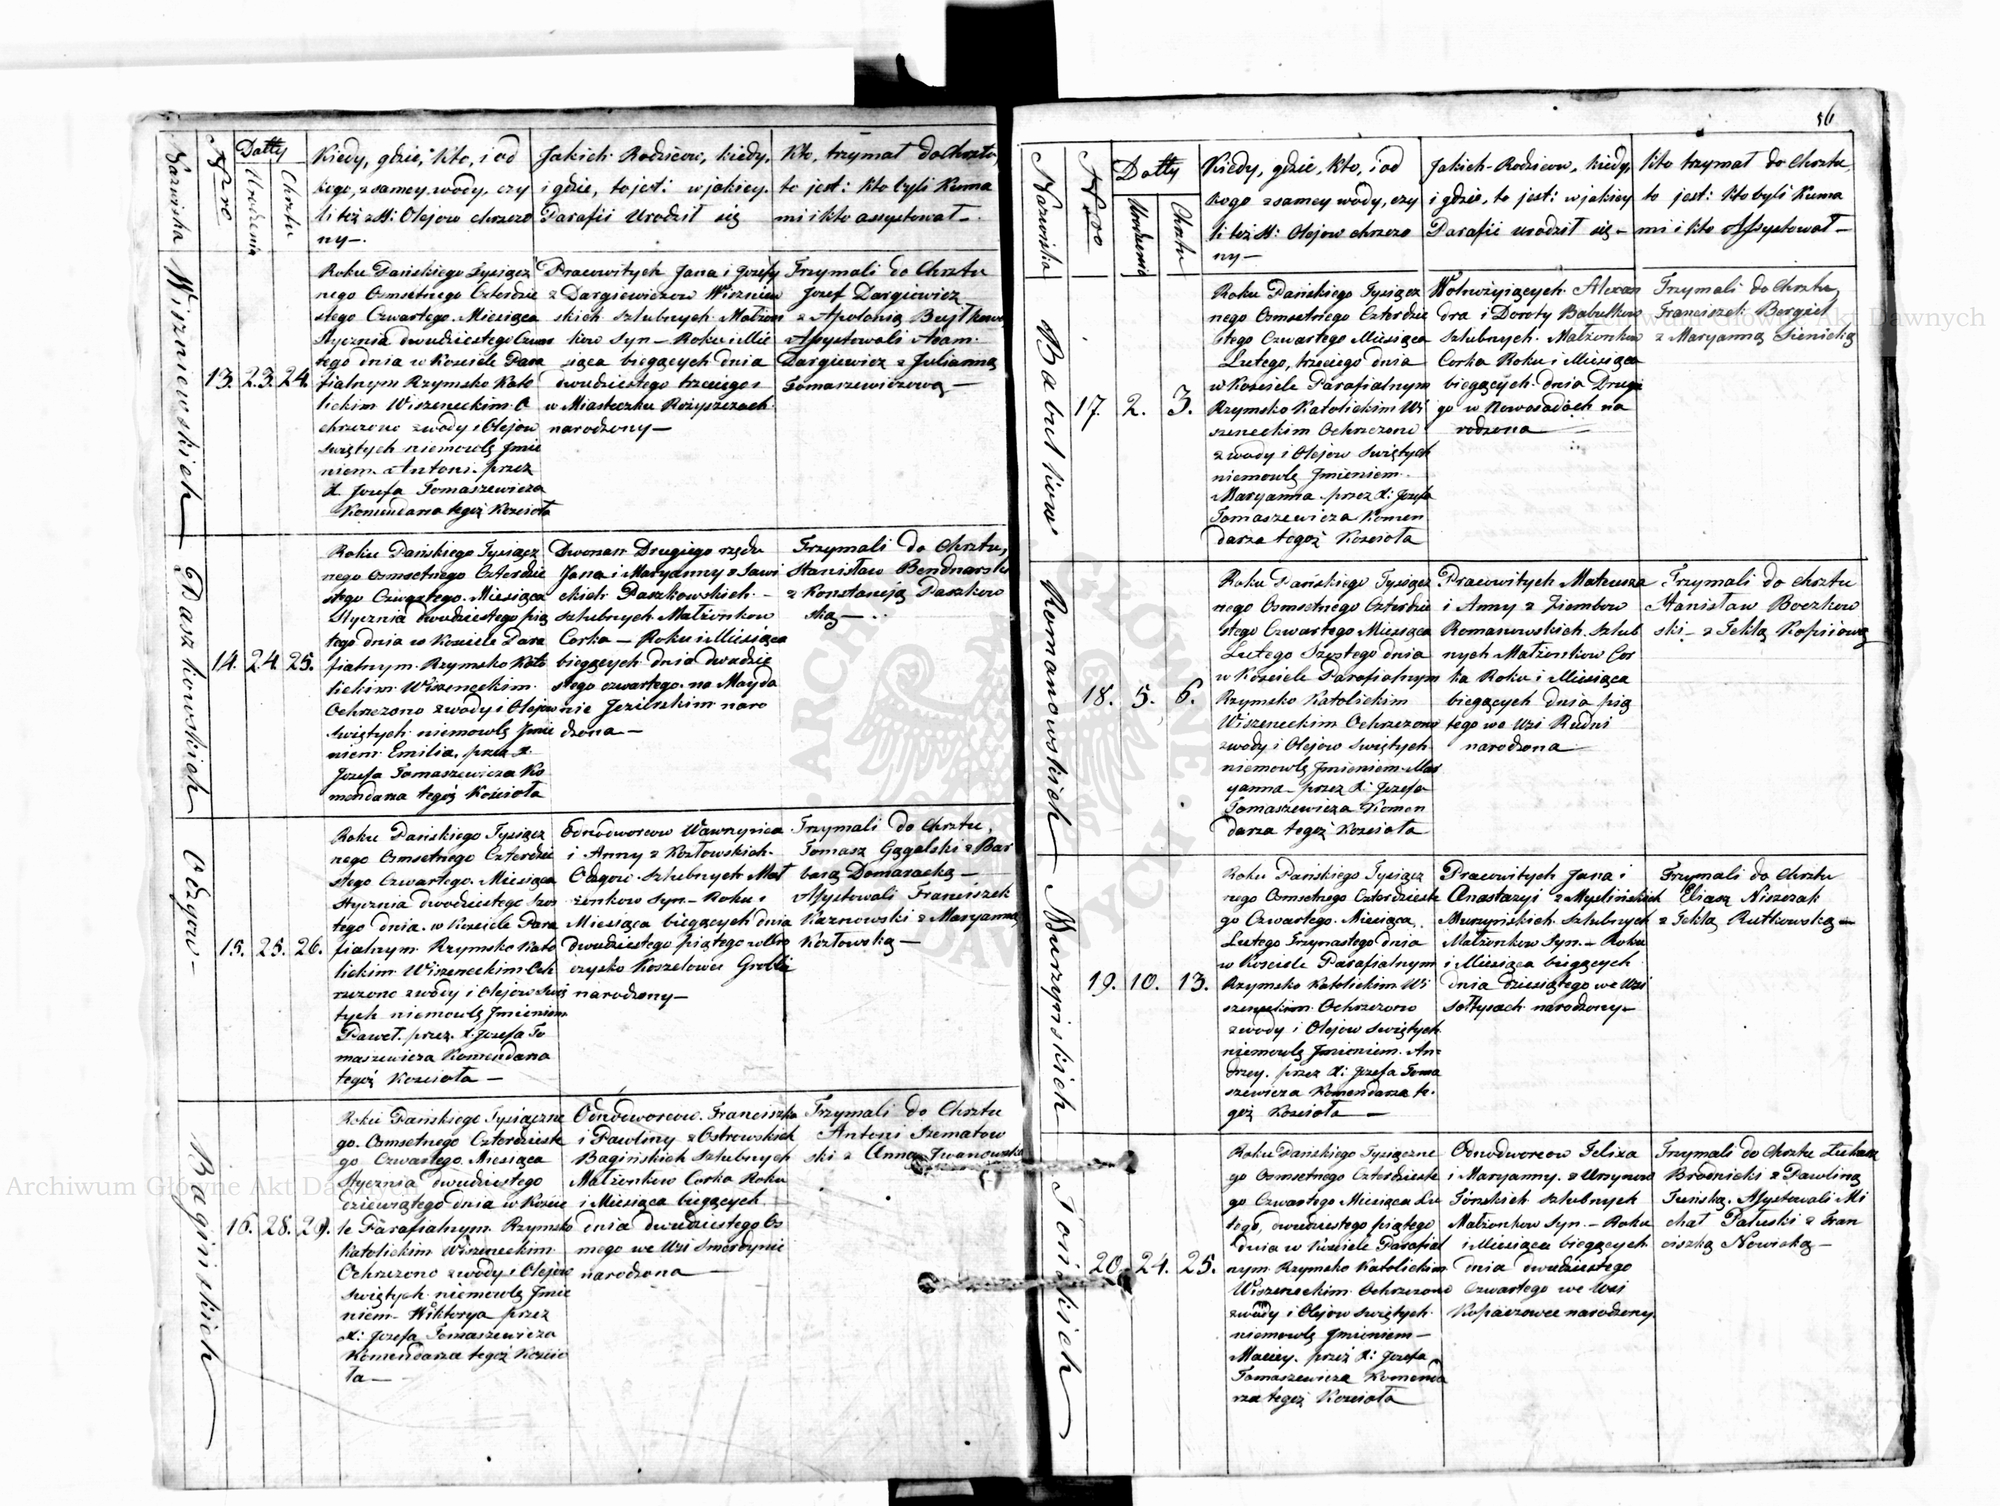 56
Nazwiska
Nro
Datty
Urodzenia
Chrztu
Kiedy, gdzie, kto, i od
kogo, z samey wody, czy
li też z SS: Olejow chrzczo
ny—
Jakich Rodzicow, kiedy,
i gdzie, to jest: w jakiey
Parafii Urodził się
Kto, trzymał do Chrztu,
to jest: kto byli Kuma
mi i kto assystował—
Wiszniewskich
13. 23. 24.
Roku Pańskiego Tysiącz
nego Osmsetnego Czterdzie
stego Czwartego Miesiąca
Stycznia dwudziestego Czwar
tego dnia w Kosciele Para
fialnym Rzymsko Kato
lickim Wiszeneckim O
chrzczono z wody i Olejow
Swiętych niemowlę Jmie
niem Antoni przez
X. Jozefa Tomaszewicza
Komendarza tegoż Kościoła
Pracowitych Jana i Jozefy
z Dargiewiczow Wiszniew
skich szlubnych Małżon
kow Syn— Roku i Mie
siąca bieżących dnia
dwudziestego trzeciego
w Miasteczku Rożyszczach
narodzony—
Trzymali do Chrztu
Jozef Dargiewicz
z Apolonią Bujtkową
Assystowali Adam
Dargiewicz z Julianną
Tomaszewiczową—
Paszkowskich
14. 24. 25.
Roku Pańskiego Tysiącz
nego Osmsetnego Czterdzie
stego Czwartego Miesiąca
Stycznia dwudziestego pią
tego dnia w Kosciele Para
fialnym Rzymsko Kato
lickim Wiszeneckim
Ochrzczono z wody i Olejow
Swiętych niemowlę Jmie
niem Emilia, przez X.
Jozefa Tomaszewicza Ko
mendarza tegoż Kościoła
Dworzan Drugiego rzędu
Jana i Maryanny z Sawi
ckich Paszkowskich—
szlubnych Małżonkow
Corka— Roku i Miesiąca
bieżących dnia dwudzie
stego czwartego na Mayda
nie Jezilrskim naro
dzona—
Trzymali do Chrztu,
Stanisław Bendnarski
z Konstancją Paszkow
ską—
Odzgow—
15. 25. 26.
Roku Pańskiego Tysiącz
nego Osmsetnego Czterdzie
stego Czwartego Miesiąca
Stycznia dwudziestego Szos
tego dnia w Kosciele Para
fialnym Rzymsko Kato
lickim Wiszeneckim Och
rzczono z wody i Olejow Swię
tych niemowlę Jmieniem
Paweł przez X. Jozefa To
maszewicza Komendarza
tegoż Kościoła—
Odnodworcow Wawrzynca
i Anny z Kozłowskich
Odzgow szlubnych Mał
żonkow Syn— Roku i
Miesiąca bieżących dnia
dwudziestego piątego w Uro
czysku Koszelowa Grobla
narodzony—
Trzymali do Chrztu,
Tomasz Gągalski z Bar
barą Domaracką—
Assystowali Franciszek
Kaznowski z Maryanną
Kozłowską—
Baginskich
16. 28. 29.
Roku Pańskiego Tysiączne
go Osmsetnego Czterdzieste
go Czwartego Miesiąca
Stycznia dwudziestego
dziewiątego dnia w Koscie
le Parafialnym Rzymsko
Katolickim Wiszeneckim
Ochrzczono z wody i Olejow
Swiętych niemowlę Jmie
niem Wiktorya przez
X: Jozefa Tomaszewicza
Komendarza tegoż Koscio
ła—
Odnodworcow Franciszka
i Pawliny z Ostrowskich
Bagińskich Szlubnych
Małżonkow Corka Roku
i Miesiąca bieżących
dnia dwudziestego Os
mego we Wsi Smordynie
narodzona—
Trzymali do Chrztu
Antoni Szematow
ski z Anną Jwanowską
Nazwiska
Nro
Datty
Urodzenia
Chrztu
Kiedy, gdzie, kto, i od
kogo z samey wody, czy
li też SS: Olejow chrzczo
ny—
Jakich Rodzicow, kiedy,
i gdzie, to jest: w jakiey
Parafii urodził się—
Kto trzymał do Chrztu,
to jest: kto byli Kuma
mi i kto Assystował—
Babulkow
17. 2. 3.
Roku Pańskiego Tysiącz
nego Osmsetnego Czterdzie
stego Czwartego Miesiąca
Lutego, trzeciego dnia
w Kosciele Parafialnym
Rzymsko Katolickim Wi
szeneckim Ochrzczono
z wody i Olejow Swiętych
niemowlę Jmieniem
Maryanna przez X: Jozefa
Tomaszewicza Komen
darza tegoż Kościoła
Wolnożyiących Alexan
dra i Doroty Babulkow
Szlubnych Małżonkow
Corka Roku i Miesiąca
bieżących dnia Drugi
go w Nowosadach na
rodzona—
Trzymali do Chrztu,
Franciszek Bergiel
z Maryanną Sienicką
Romanowskich
18. 5. 6.
Roku Pańskiego Tysiącz
nego Osmsetnego Czterdzie
stego Czwartego Miesiąca
Lutego Szostego dnia
w Kosciele Parafialnym
Rzymsko Katolickim
Wiszeneckim Ochrzczono
z wody i Olejow Swiętych
niemowlę Jmieniem Mar
yanna— przez X: Jozefa
Tomaszewicza Komen
darza tegoż Kościoła
Pracowitych Mateusza
i Anny z Ziembow
Romanowskich Szlub
nych Małżonkow Cor
ka Roku i Miesiąca
bieżących dnia pią
tego we Wsi Rudni
narodzona—
Trzymali do Chrztu
Stanisław Boczkow
ski— z Teklą Kopijową
Murzyńskich
19. 10. 13.
Roku Pańskiego Tysiącz
nego Osmsetnego Czterdzieste
go Czwartego Miesiąca
Lutego Trzynastego dnia
w Kosciele Parafialnym
Rzymsko Katolickim Wi
szeneckim Ochrzczono
z wody i Olejow Swiętych
niemowlę Jmieniem An=
drzey przez X: Jozefa Toma
szewicza Komendarza te
goż Kościoła—
Pracowitych Jana i
Anastazyi z Myslińskich
Murzyńskich Szlubnych
Małżonkow Syn— Roku
i Miesiąca bieżących
dnia dziesiątego we Wsi
Sołtysach narodzony—
Trzymali do Chrztu
Eliasz Niszczak
z Teklą Rutkowską—
Tońskich
20. 24. 25.
Roku Pańskiego Tysiączne
go Osmsetnego Czterdzieste
go Czwartego Miesiąca Lu
tego, dwudziestego piątego
dnia w Kosciele Parafial
nym Rzymsko Katolickim
Wiszeneckim Ochrzczono
z wody i Olejow Swiętych
niemowlę Jmieniem—
Maciey przez X: Jozefa
Tomaszewicza Komenda
rza tegoż Kościoła
Odnodworcow Felixa
i Maryanny z Ursynow
Tońskich szlubnych
Małżonkow Syn— Roku
i Miesiąca bieżących
dnia dwudziestego
Czwartego we Wsi
Kopaczowce narodzony.
Trzymali do Chrztu Łukasz
Brodnicki z Pawliną
Tuńską. Assystowali Mi
chał Pałuski z Fran
ciszką Nowicką—
Archiwum Główne Akt Dawnych
Archiwum Główne Akt Dawnych